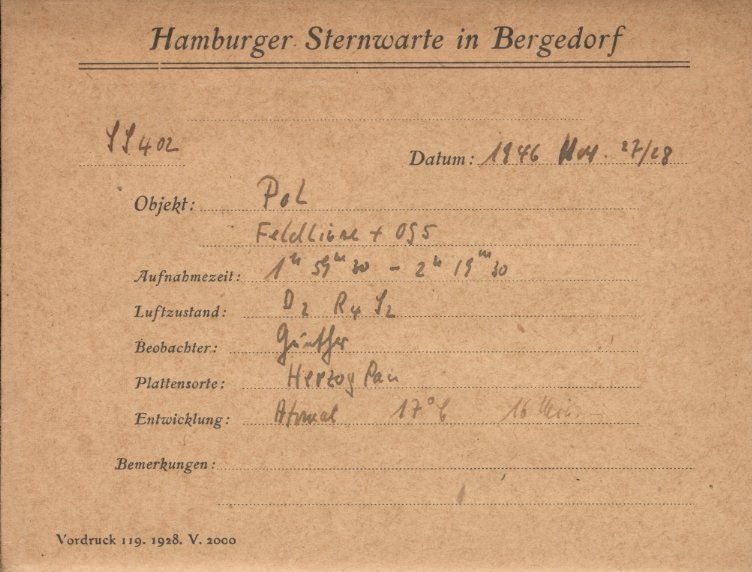 Hamburger Sternwarte in Bergedorf
SS 402
Datum: 1946 Nov. 27/28
Objekt: Pol
Feldlinse + OG5
Aufnahmezeit: 1h 59m 30 – 2h 19m 30
Luftzustand: D2 R4 S2
Beobachter: Günther
Plattensorte: Herzog Pan
Entwicklung: Atomal 17°C 16 Min
Bemerkungen:
Vordruck 119. 1928. V. 2000